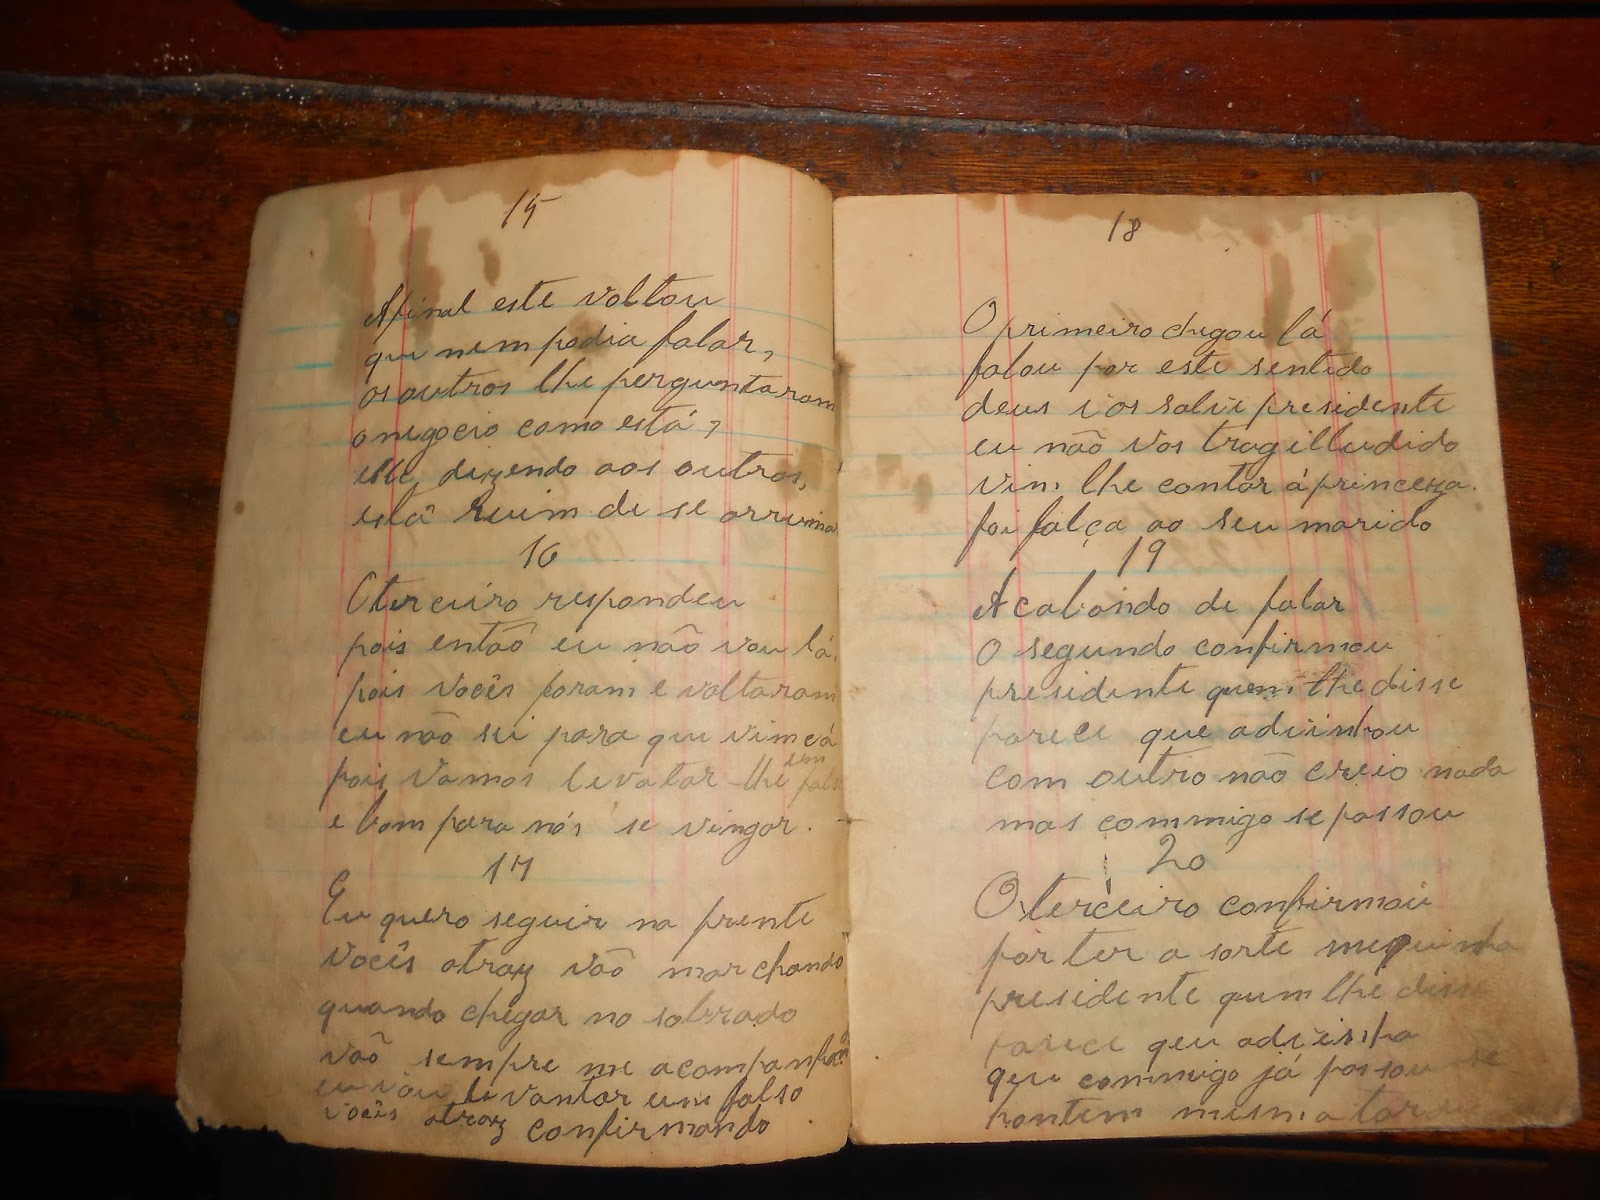 15
Afinal este voltou
que nem podia falar,
os outros lhe perguntaram
o negocio como está,
elle dizendo aos outros,
está ruim de se arruma
16
O terceiro respondeu
pois então eu não vou lá,
pois vocês foram e voltaram
eu não sei para que vim cá
pois vamos levatar-lhe um fals
e bom para nós se vingar.
17
Eu quero seguir na frente
vocês atraz vão marchando
quando chegar no sobrado
vão sempre me acompanhando
eu vou levantar um falso
vocês atraz confirmando
18
O primeiro chegou lá
falou por este sentido
deus vos salve presidente
eu não vos trago illudido
vim lhe contar á princeza.
foi falça ao seu marido
19
Acabando de falar
O segundo confirmou
presidente quem lhe disse
parece que adivinhou
com outro não creio nada
mas commigo se passou
20
O terceiro confirmou
por ter a sorte mesquinha
presidente quem lhe disse
parece que adivinha
que commigo já passou-se
hontem mesmo a tard